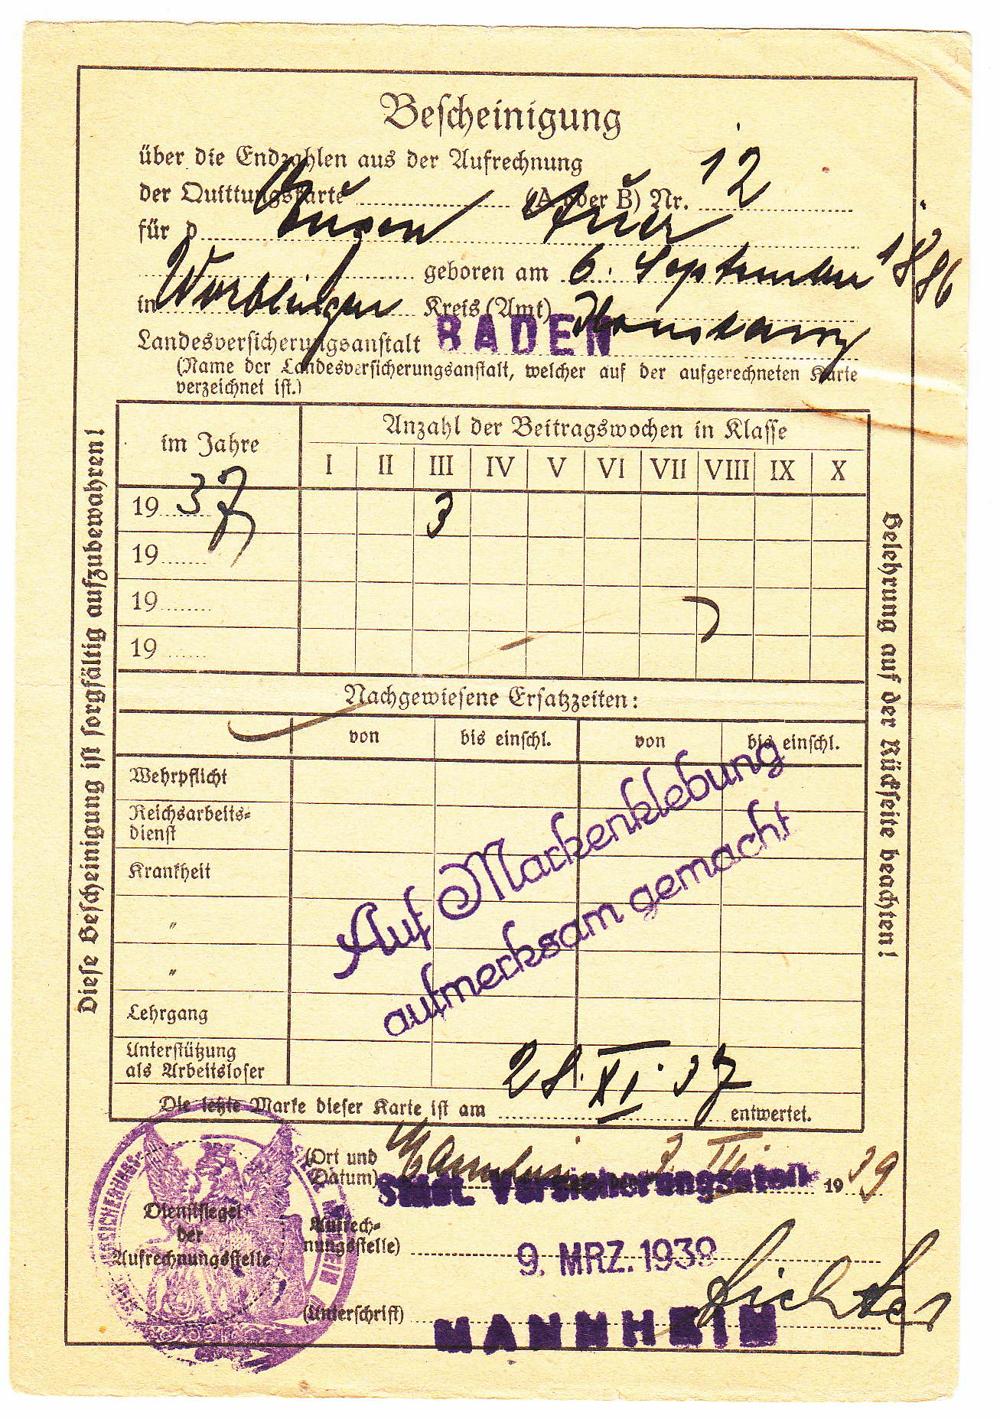 Bescheinigung
über die Endzahlen aus der Aufrechnung
der Quittungskarte (A oder B) Nr. 12
für d Eugen Auer
geboren am 6. September 1886
in Worblingen Kreis (Amt) Konstanz
Landesversicherungsanstalt BADEN
(Name der Landesversicherungsanstalt, welcher auf der aufgerechneten Karte
verzeichnet ist.)
Diese Bescheinigung ist sorgfältig aufzubewahren!
im Jahre
Anzahl der Beitragswochen in Klasse
I II III IV V VI VII VIII IX X
19 37 3
19
19
19
Nachgewiesene Ersatzzeiten:
von bis einschl. von bis einschl.
Wehrpflicht
Reichsarbeits-
dienst
Krankheit
"
"
Lehrgang
Unterstützung
als Arbeitsloser
Auf Markenklebung
aufmerksam gemacht
Die letzte Marke dieser Karte ist am 28. XI. 37 entwertet.
Belehrung auf der Rückseite beachten!
(Ort und
Datum) Mannheim 7 III 1939
Städt. Versicherungsstelle
Dienstsiegel
der
Aufrechnungsstelle
(Aufrech-
nungsstelle)
9. MRZ. 1939
(Unterschrift)
MANNHEIM